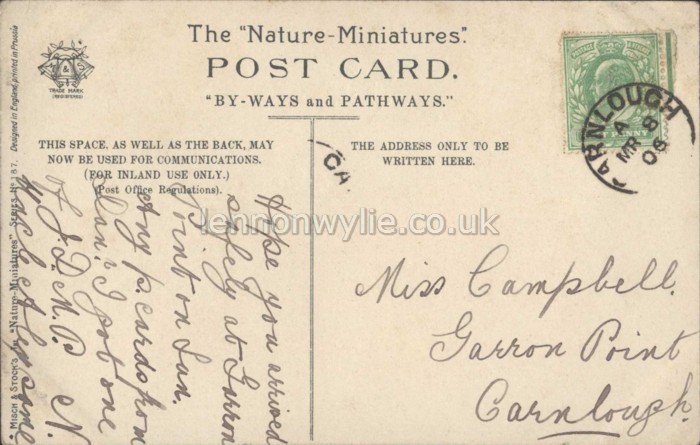 The "Nature-Miniatures".
POST CARD.
"BY-WAYS and PATHWAYS."
TRADE MARK
(REGISTERED)
M & S
THIS SPACE, AS WELL AS THE BACK, MAY
NOW BE USED FOR COMMUNICATIONS.
(FOR INLAND USE ONLY.)
(Post Office Regulations).
THE ADDRESS ONLY TO BE
WRITTEN HERE.
CARNLOUGH
A
MR 8
06
CA
lennonwylie.co.uk
Hope you arrived
safely at Garron
Point on Sun.
Any p. cards from
Dan? I got one
of J.D.M.P. N.
Miss Campbell.
Garron Point
Carnlough.
"MISCH & STOCK'S" "Nature-Miniatures" SERIES No 167. Designed in England, printed in Prussia